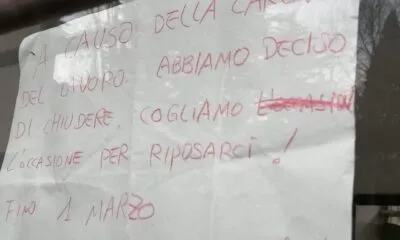 A CAUSO DELLA
DEL LAVORO. ABBIAMO DECISO
DI CHIUDERE. COGLIAMO
L'OCCASIONE PER RIPOSARCI!
FINO 1 MARZO